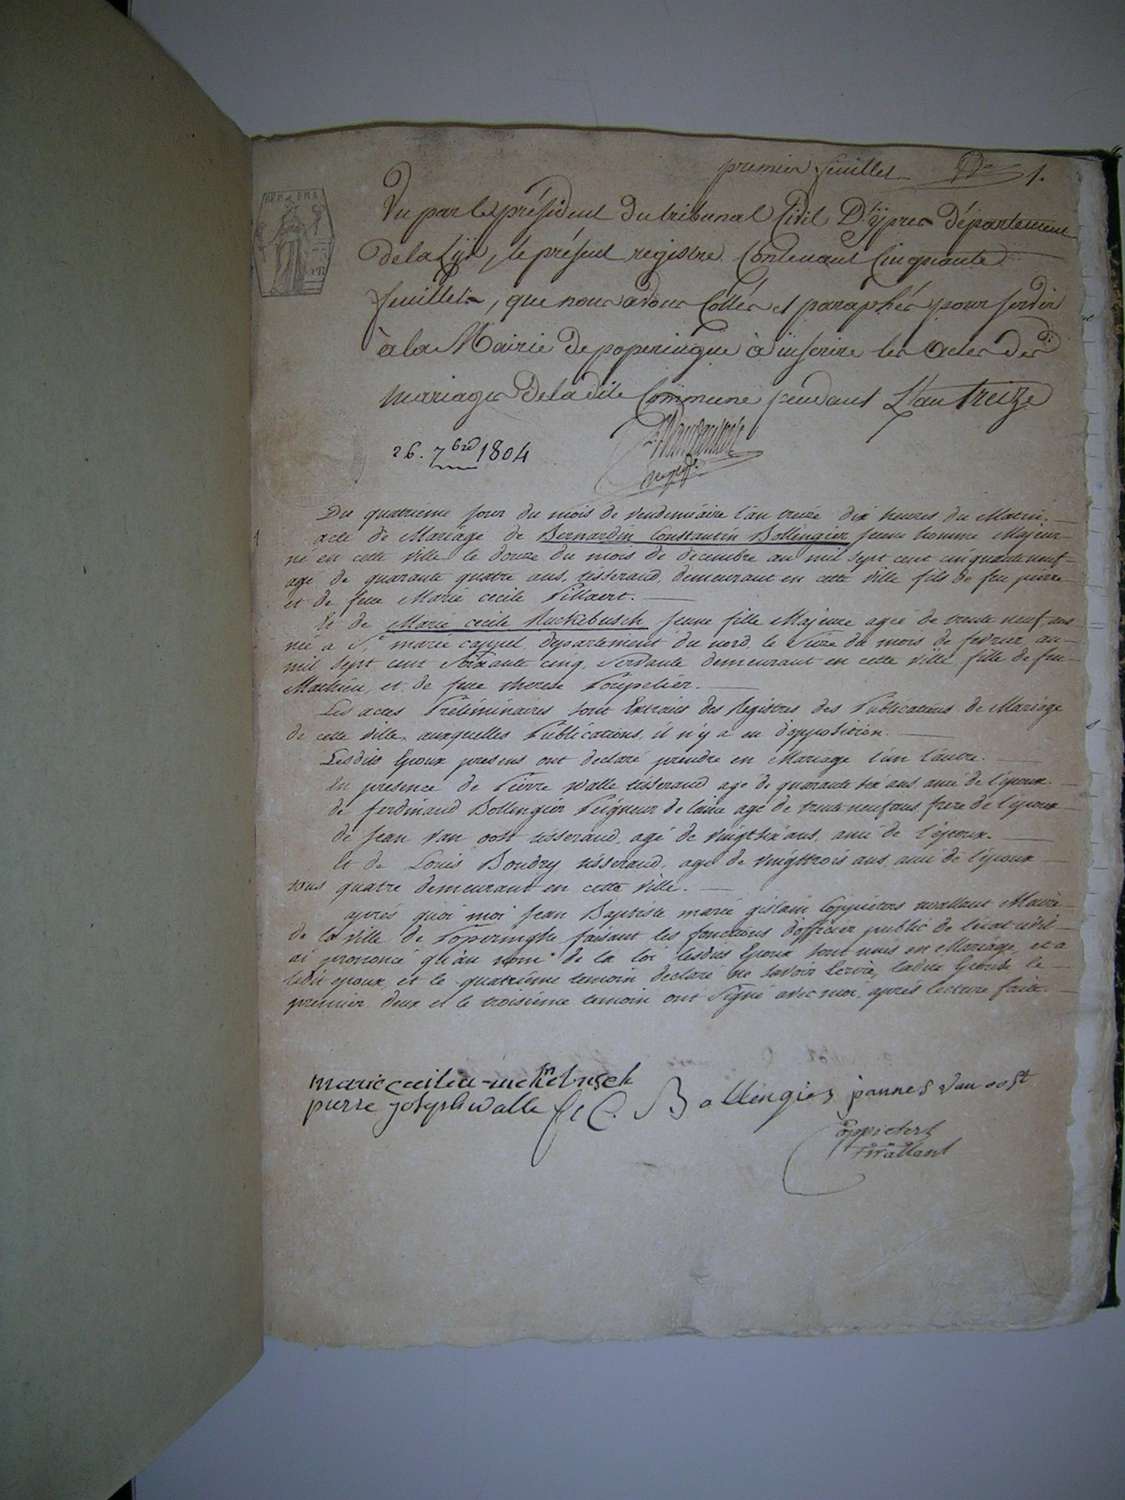 premier feuillet 1.
REP. FRA.
Vu par le président du tribunal Civil D'ypres département
de la Lys, le présent registre Contenant Cinquante
feuillets, que nous avons Cottés et paraphés pour servir
à la Mairie de poperingue à inscrire les actes des
mariages de la dite Commune pendant L'an treize
26. 7bre 1804
1
Du quatrieme jour du mois de vendemiaire l'an treize dix heures du Matin.
acte de Mariage de Bernardin Constantin Bollengier jeune homme Majeur
né en cette ville le douze du mois de decembre an mil sept cent cinquante neuf
agé de quarante quatre ans, tisserand, demeurant en cette ville fils de feu pierre
et de feue Marie Cecile Villaert.
Et de Marie Cecile Huckebusch jeune fille Majeure agée de trente neuf ans
née a St. marie cappel, département du nord, le Seize du mois de fevrier an
mil sept cent Soixante cinq, Servante demeurant en cette ville fille de feu
Mathieu, et de feue therese Poupelier.
Les actes Préliminaires sont Extraits des Registres des Publications de Mariage
de cette Ville, auxquelles Publications, il n'y a eu d'opposition.
Lesdits Epoux presens ont declaré prendre en Mariage l'un l'autre.
En presence de Pierre Walle tisserand agé de quarante six ans ami de l'époux.
de ferdinand Bollengier Peigneur de laine agé de trente neuf ans frere de l'époux
de Jean Van oost tisserand, agé de vingt six ans, ami de l'époux.
Et de Louis Boudry tisserand, agé de vingt trois ans, ami de l'époux
tous quatre demeurant en cette Ville.
après quoi moi Jean Baptiste marie gislain Coppieters Wallant Maire
de la Ville de Poperinghe faisant les fonctions d'officier public de l'etat civil
ai prononcé qu'au nom de la loi lesdits Epoux sont unis en Mariage, et a
ledit epoux, et le quatrième temoin declaré ne savoir Ecrire, ladite Epouse le
premier deux et le troisieme temoin ont Signé avec moi, après lecture faite.
marie cecilia huckebusch
pierre joseph walle f: C. Bollengier jannes van oost
Coppieters
Wallant